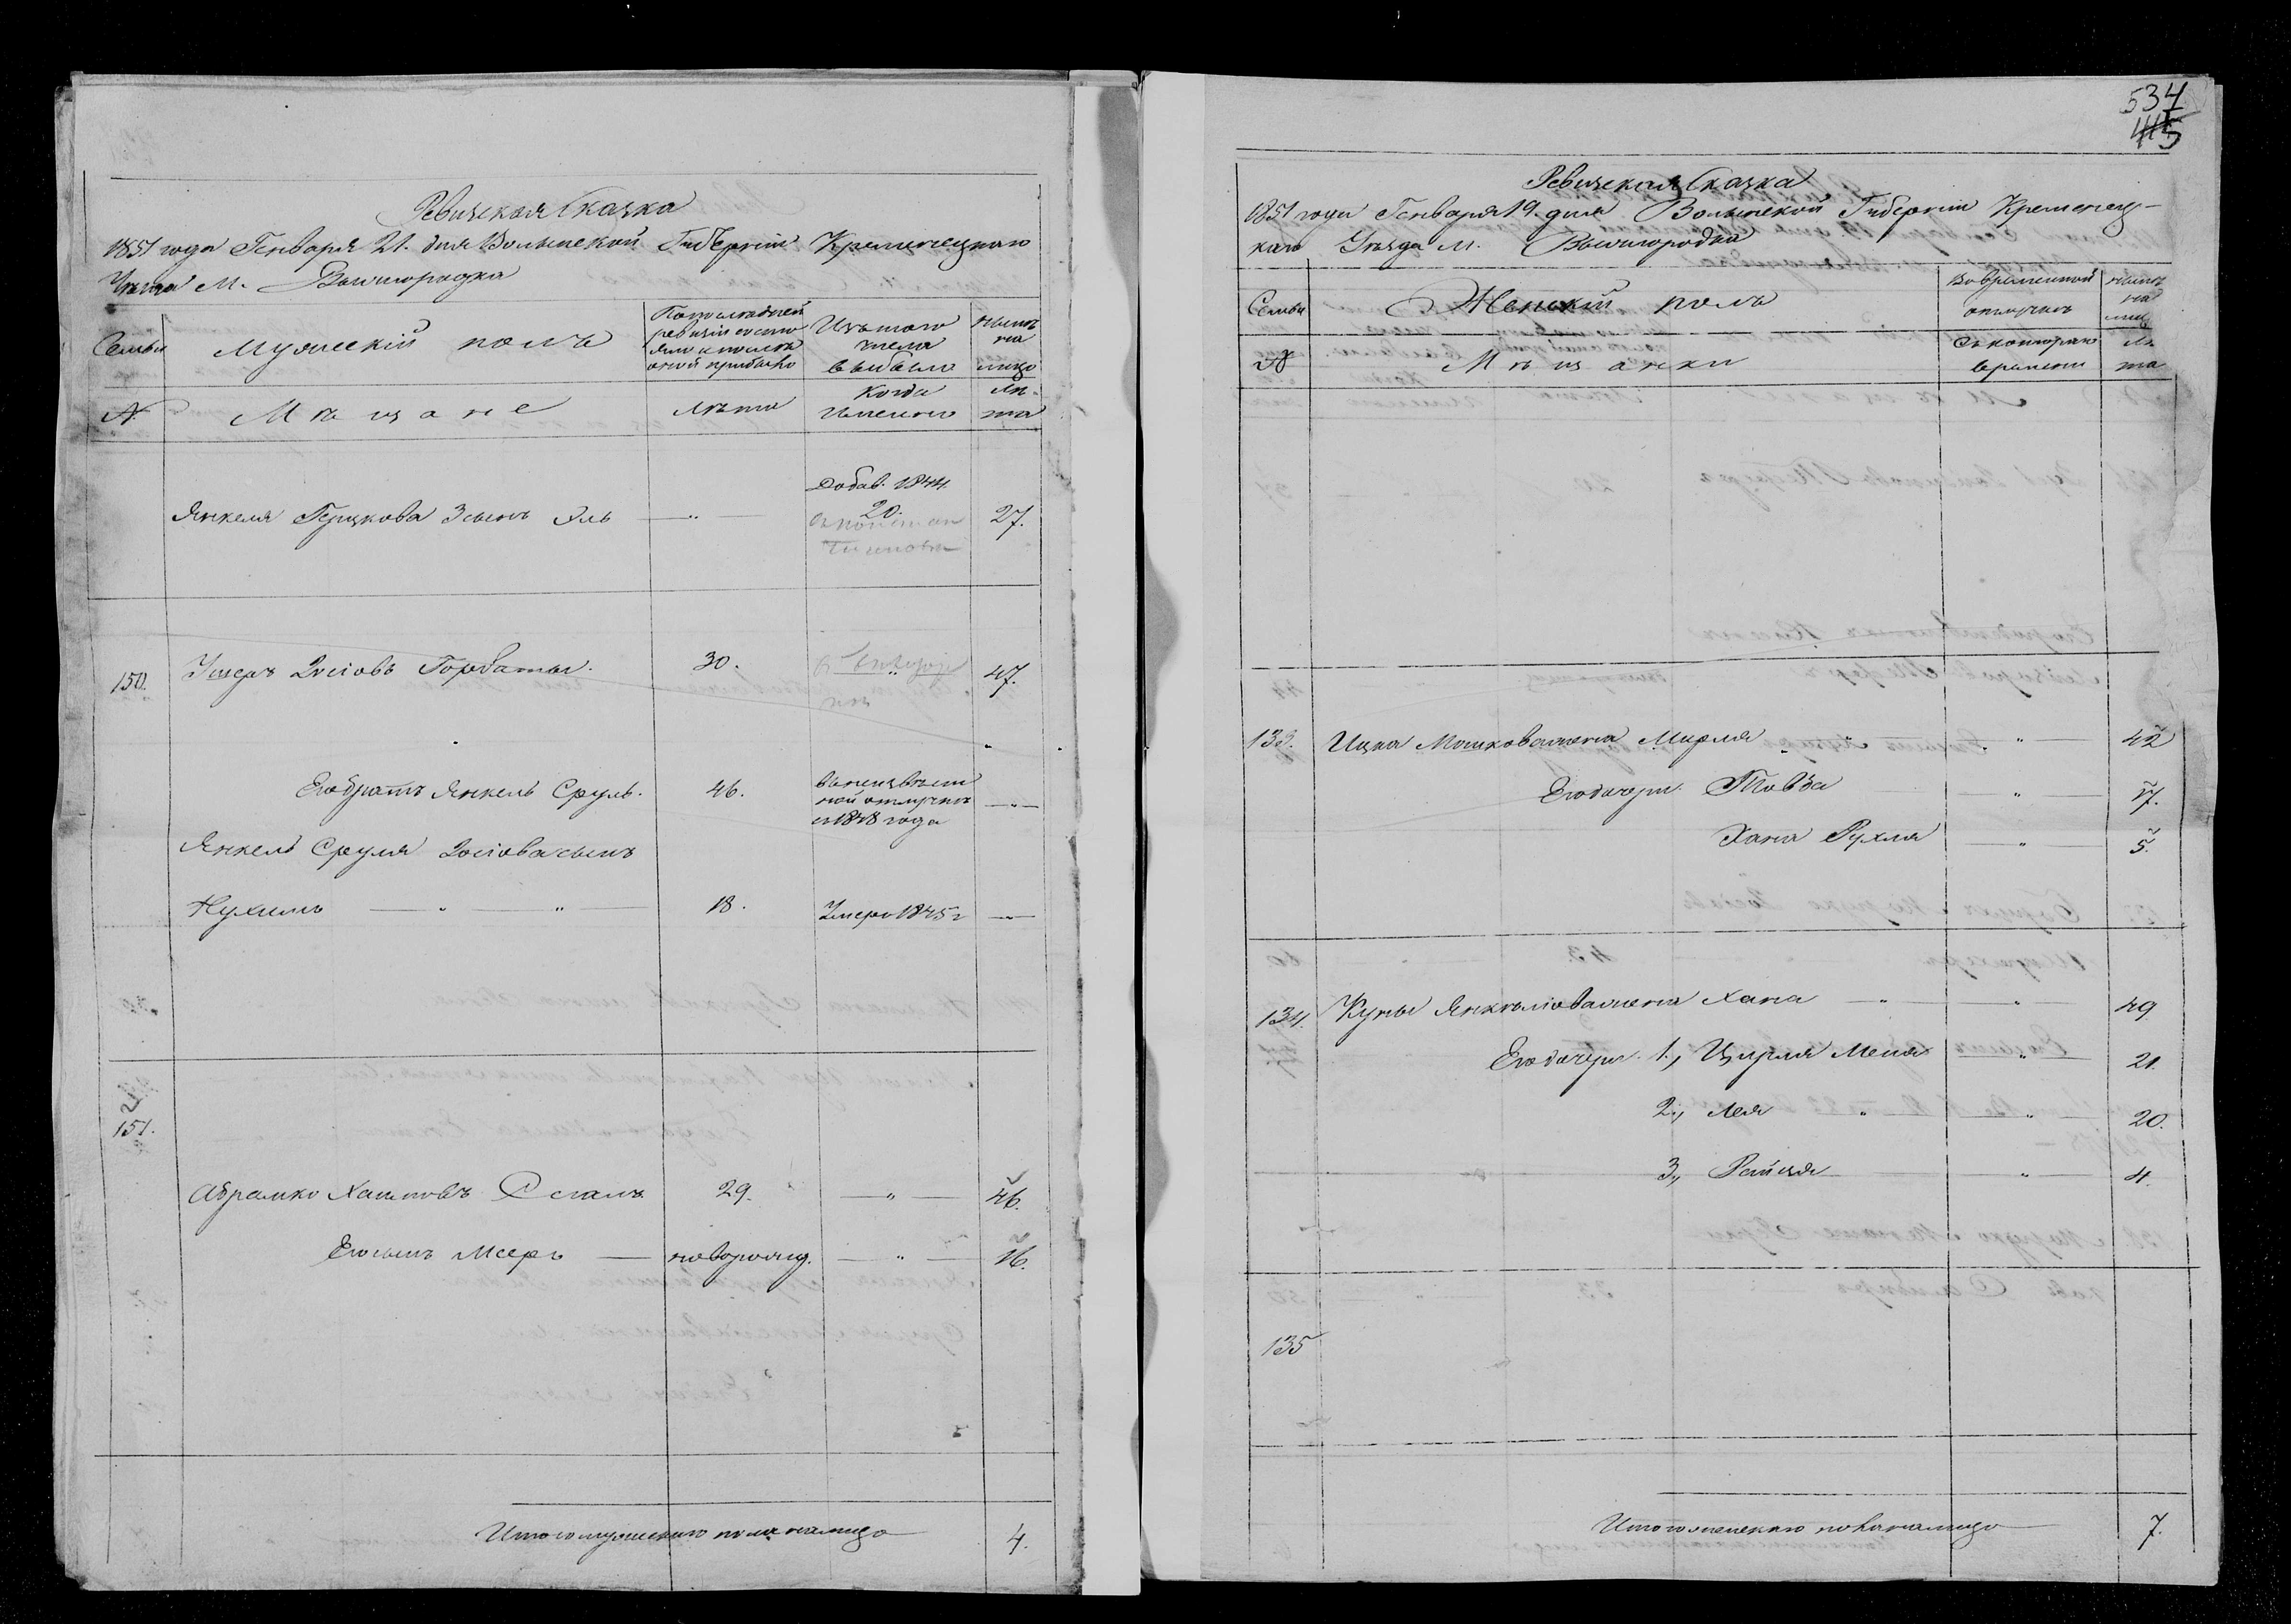 Ревизская Сказка
1851 года Генваря 21. дня Волынской Губерніи Кременецкаго
Уезда М. Вышгородка
Семьи
Мужескій полъ
По последней ревизіи состояло и после оной прибыло
Изъ того числа выбыло
Ныне на лицо
№
Мещане
Лета
Когда именно
Лета
Янкеля Герцкова 3 сынъ Эль — „ — Добав. 1844. 20. 27.
150. Усшеръ Іосіовъ Горбаты. 30. „ 47.
Его братъ Янкель Сруль. 46. въ неизвестной отлучке съ 1848 года — „ —
Янкель Сруля Іосіова сынъ
Нухимъ — „ — „ — 18. Умеръ 1845 г — „ —
151.
Абрамко Хаимовъ 29. — „ — 46.
Его сынъ Мееръ — новорожд. — „ — 16.
Итого мужескаго пола на лицо 4.
534
415
Ревизская Сказка
1851 года Генваря 19. дня Волынской Губерніи Кременец-
каго Уезда М. Вышгородка
Семьи
Женскій полъ
Во временной отлучке
Ныне на лиц
№
Мещанки
Съ котораго времени
Лета
133. Ицка Мошкова жена Мирля „ — „ — 42
Его дочери. Товба — „ — 17.
Хана Рухля — „ — 5.
134. Куны Янкеліова жена Хана — „ — „ — 49
Его дочери. 1., Цирля Меня — „ — 21.
2., Лея „ — „ — 20.
3., Рейзя — „ — 4.
135
Итого женскаго пола на лицо 7.